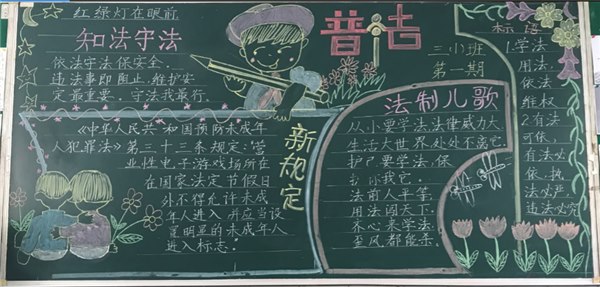 红绿灯在眼前
知法守法
依法守法保安全.
违法事即阻止.维护安
定最重要.守法我最行.
普法
三小班
第一期
标语
1.学法
用法
依法
维权
2.有法
可依,
有法必
依,执
法必严,
违法必究
新规定
《中华人民共和国预防未成年
人犯罪法》第三十三条规定:营
业性电子游戏场所在
在国家法定节假日
外不得允许未成
年人进入,并应当设
置明显的未成年人
进入标志。
法制儿歌
从小要学法,法律威力大
生活大世界,处处不离它.
护己要学法,保
我它.
法前人平等,
用法闯天下.
齐心来学法,
歪风都能杀.